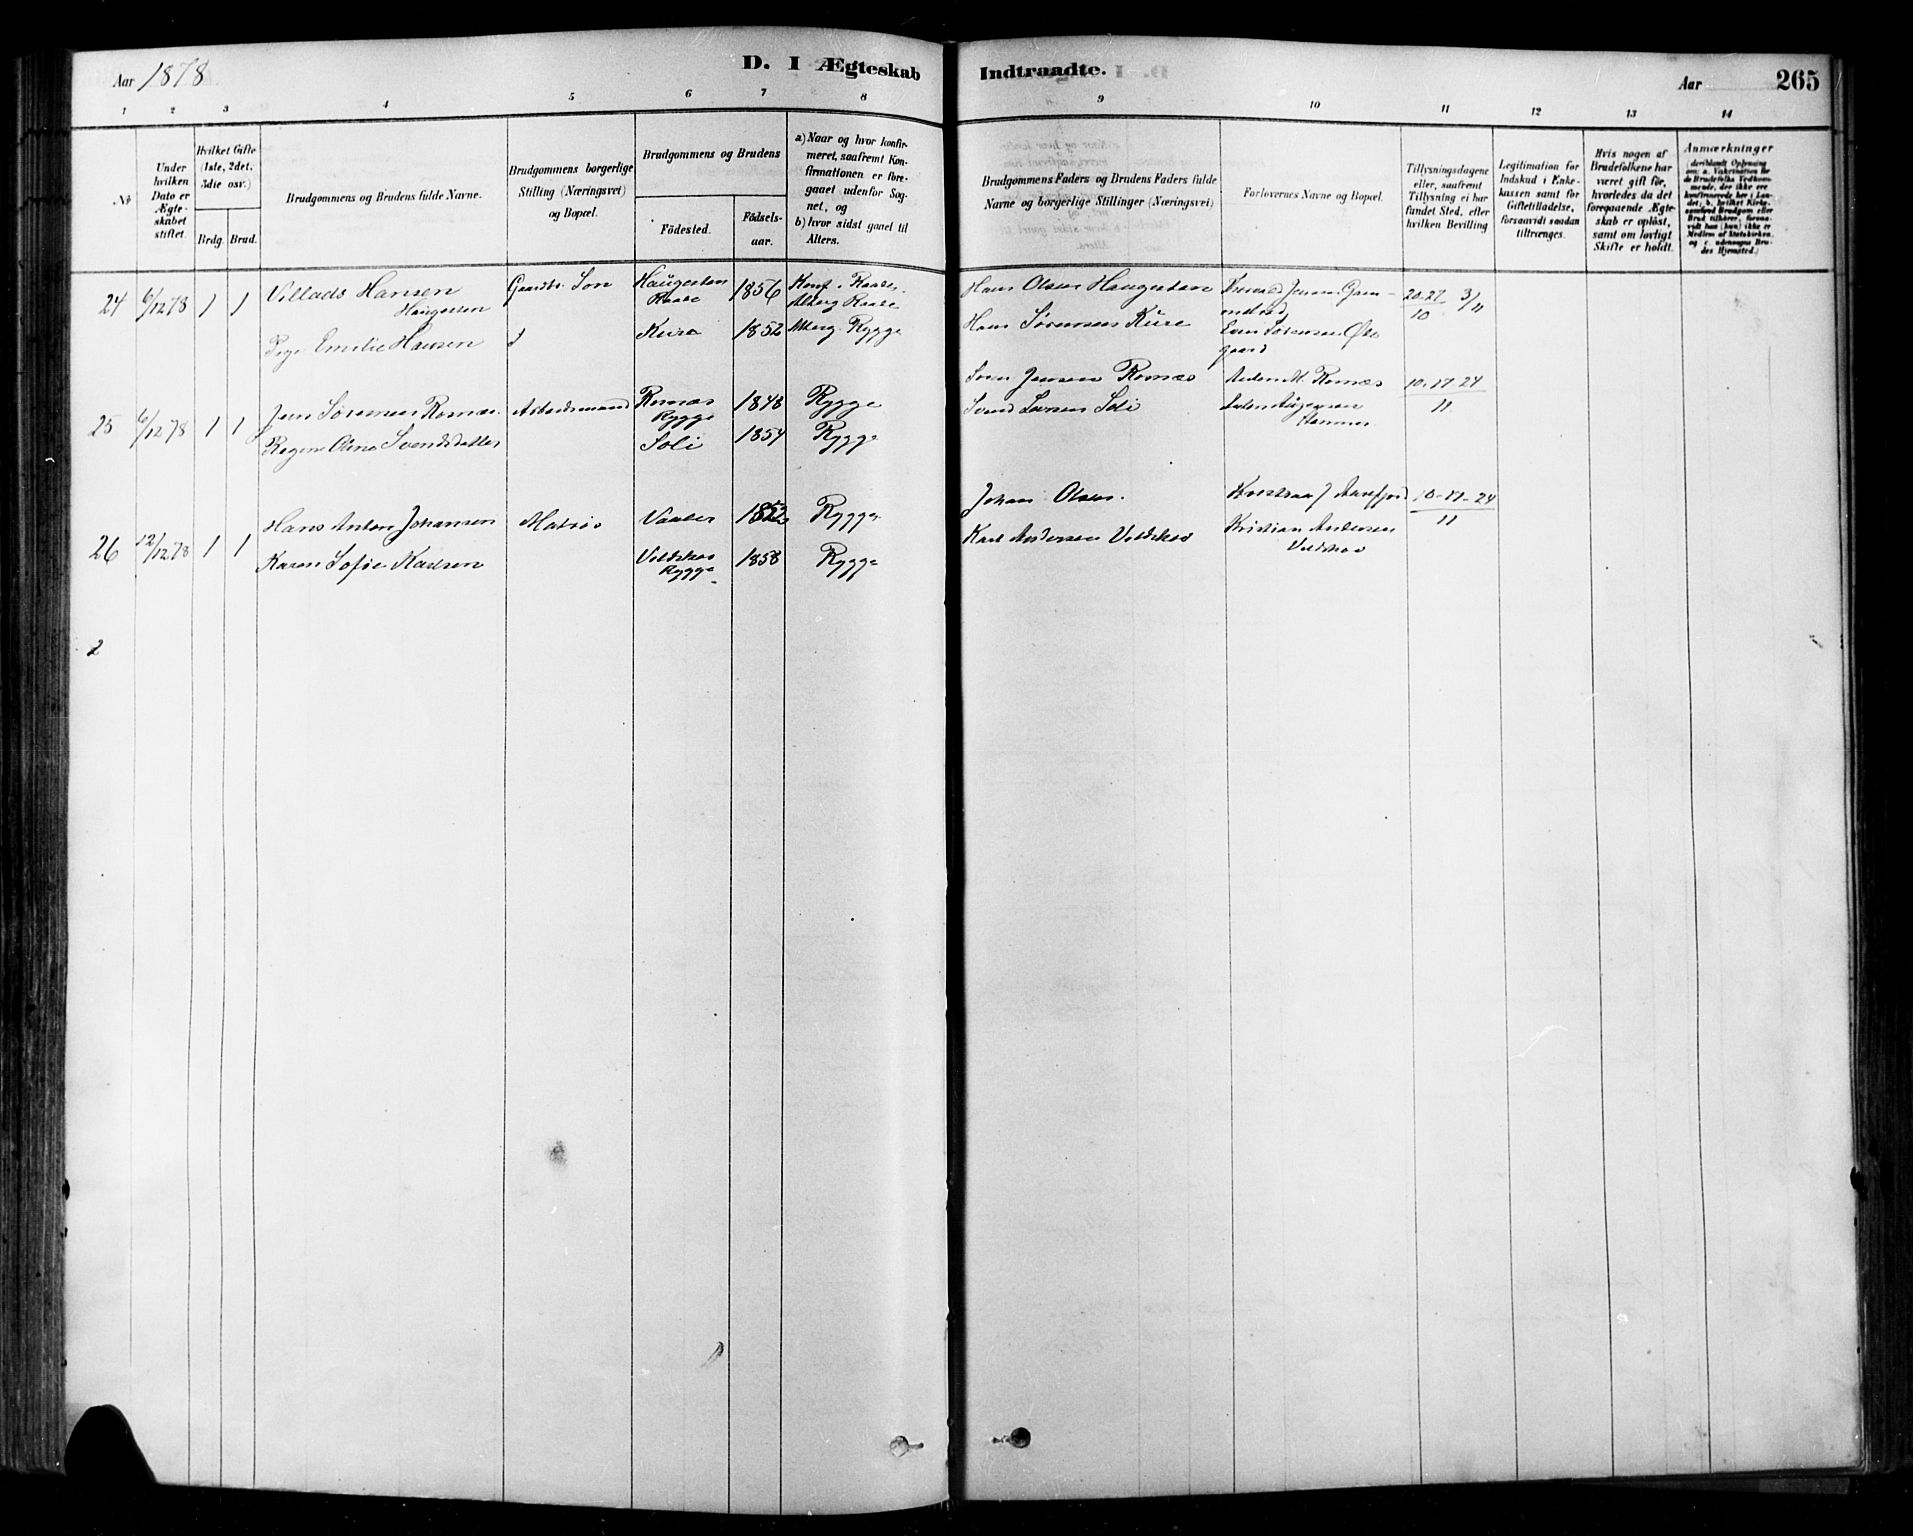 Aar 1878
D. I Ægteskab
Indtraadte.
Aar 265
1 2 3 4 5 6 7 8 9 10 11 12 13 14
No
Under hvilken Dato er Ægteskabet stiftet.
Hvilket Gifte (1ste, 2det, 3die osv.)
Brdg. Brud.
Brudgommens og Brudens fulde Navne.
Brudgommens borgerlige Stilling (Næringsvei) og Bopæl.
Brudgommens og Brudens
Födested.
Födsels-aar.
a) Naar og hvor konfirmeret, saafremt Konfirmationen er foregaaet udenfor Sognet, og
b) hvor sidst gaael til Alters.
Brudgommens Faders og Brudens Faders fulde Navne og borgerlige Stillinger (Næringsvei)
Forlovernes Navne og Bopæl.
Tillysningsdagene eller, saafremt Tillysning ei har fundet Sted, efter hvilken Bevilling
Legitimation for Indskud i Enkekassen samt for Giftetilladelse, forsaavidt saadan tiltrænges.
Hvis nogen af Brudefolkene har været gift för, hvorledes da det foregaaende Ægteskab er oplöst, samt om lovligt Skifte er holdt.
Anmærkninger
24 6/12 78 1 1 Villads Hansen Haugesten Gaardbr. Søn Haugesten Raade 1856 Konf. i Raade, Alterg Raade Hans Olsen Haugesten 20-27/10 3/11
Emilie Hansen Kure 1852 Alterg. Rygge Hans Sørensen Kure
25 6/12 78 1 1 Jens Sørensen Romæs Arbeidsmand Romæs Rygge 1848 Rygge Søren Jensen Romæs Anton M. Romæs 10-17-24/11
Regine Oline Svendsdatter Soli 1854 Rygge Svend Larsen Soli
26 12/12 78 1 1 Hans Anton Johansen Matros Vaaler 1852 Rygge Johan Olsen. 10-17-24/11
Karen Sofie Karlsen Vildskov Rygge 1858 Rygge Karl Andersen Vildskov Kristian Andersen Vildskov
2